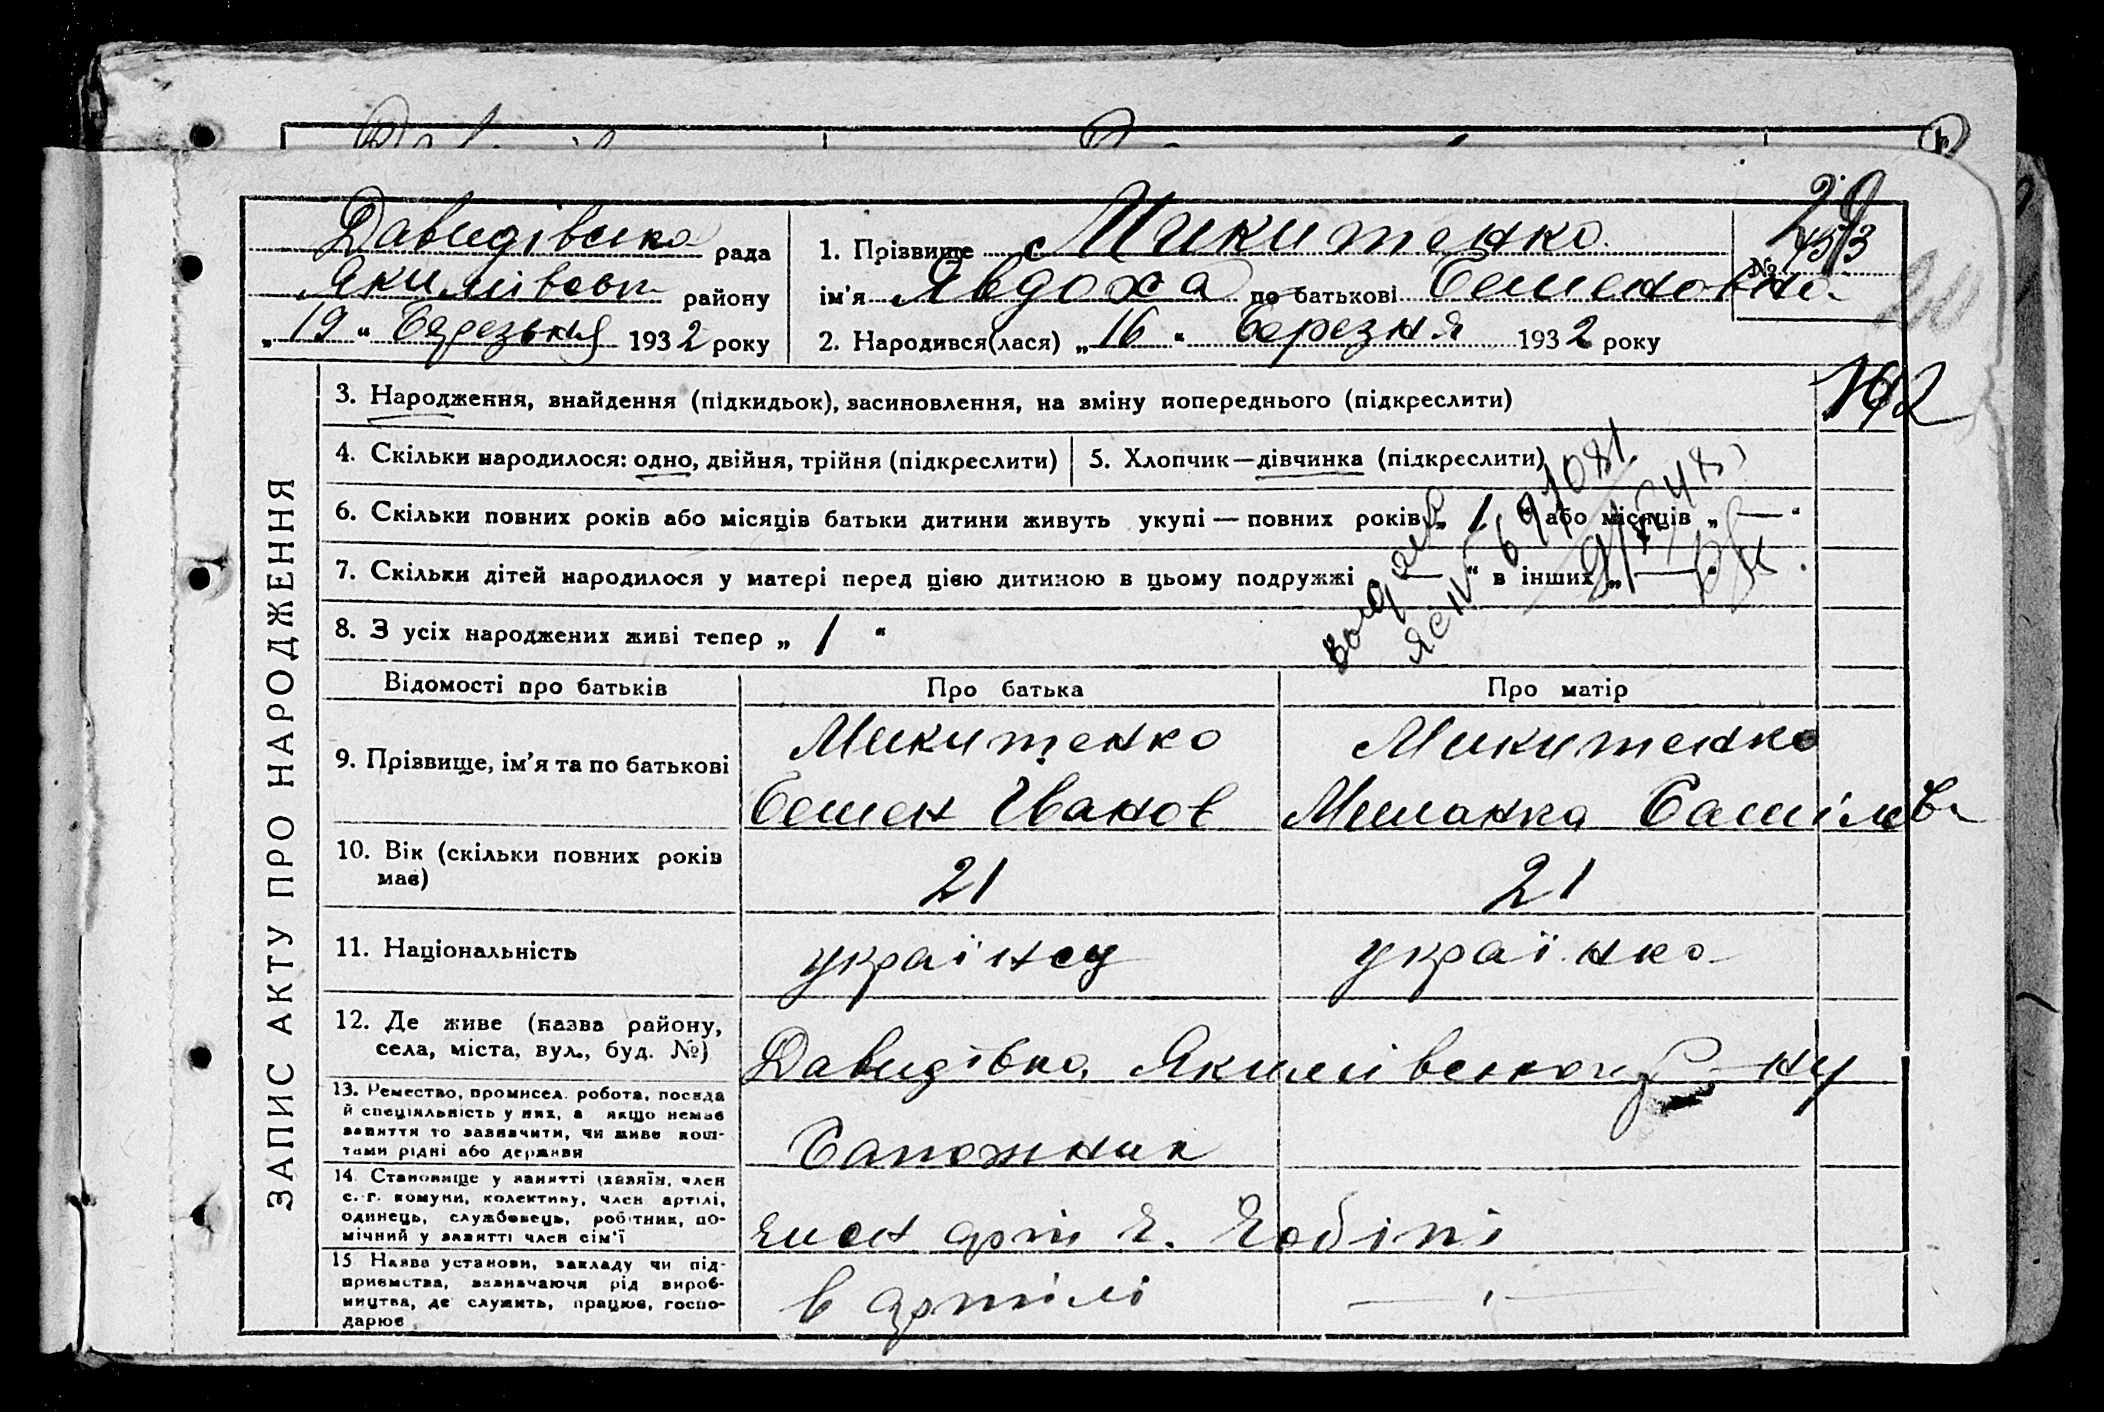 Давидівська рада
Якимівськ району
„ 19 " Березьня 1932 року
1. Прізвище Микитенко
ім'я Явдоха по батькові Семеновна
2. Народився(лася) „ 16 " Березня 1932 року
№
3. Народження, знайдення (підкидьок), засиновлення, на зміну попереднього (підкреслити)
4. Скільки народилося: одно, двійня, трійня (підкреслити)
5. Хлопчик—дівчинка (підкреслити)
6. Скільки повних років або місяців батьки дитини живуть укупі — повних років „ 1 " або місяців „ — "
7. Скільки дітей народилося у матері перед цією дитиною в цьому подружжі „ — " в інших „ — "
8. З усіх народжених живі тепер „ 1 "
ЗАПИС АКТУ ПРО НАРОДЖЕННЯ
Відомості про батьків
Про батька
Про матір
9. Прізвище, ім'я та по батькові
Микитенко
Семен Іванов
Микитенко
Миланка
10. Вік (скільки повних років має)
21
21
11. Національність
українец
українка
12. Де живе (назва району,
села, міста, вул., буд. №)
Давидівка Якимівського р-ну
13. Ремество, промисел, робота, посада
й спеціяльність у них, а якщо немає
заняття то зазначити, чи живе кош-
тами рідні або держави
Сапожник
14. Становище у занятті (хазяїн, член
с.-г. комуни, колективу, член артілі,
одинець, службовець, робітник, по-
мічний у занятті член сім'ї
член арті
15 Назва установи, закладу чи під-
приємства, зазначаючи рід вироб-
ництва, де служить, працює, госпо-
дарює
в артілі